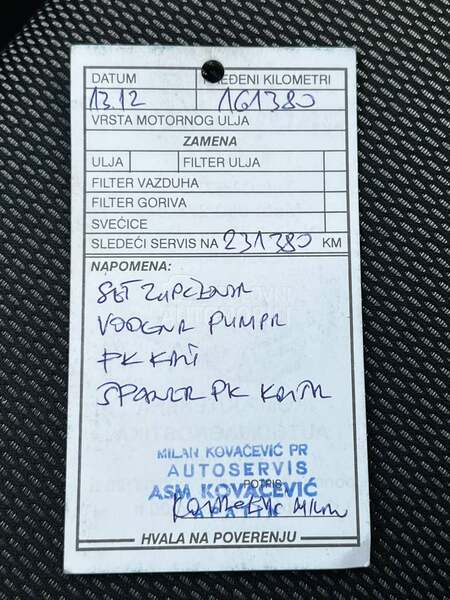 DATUM PREĐENI KILOMETRI
13.12 161380
VRSTA MOTORNOG ULJA
ZAMENA
ULJA FILTER ULJA
FILTER VAZDUHA
FILTER GORIVA
SVEĆICE
SLEDEĆI SERVIS NA 231380 KM
NAPOMENA:
SET ZUPČENJA
VODENA PUMPA
PK KAIŠ
ŠPANER PK KAIŠA
MILAN KOVAČEVIĆ PR
AUTOSERVIS
POTPIS
ASM KOVAČEVIĆ
HVALA NA POVERENJU